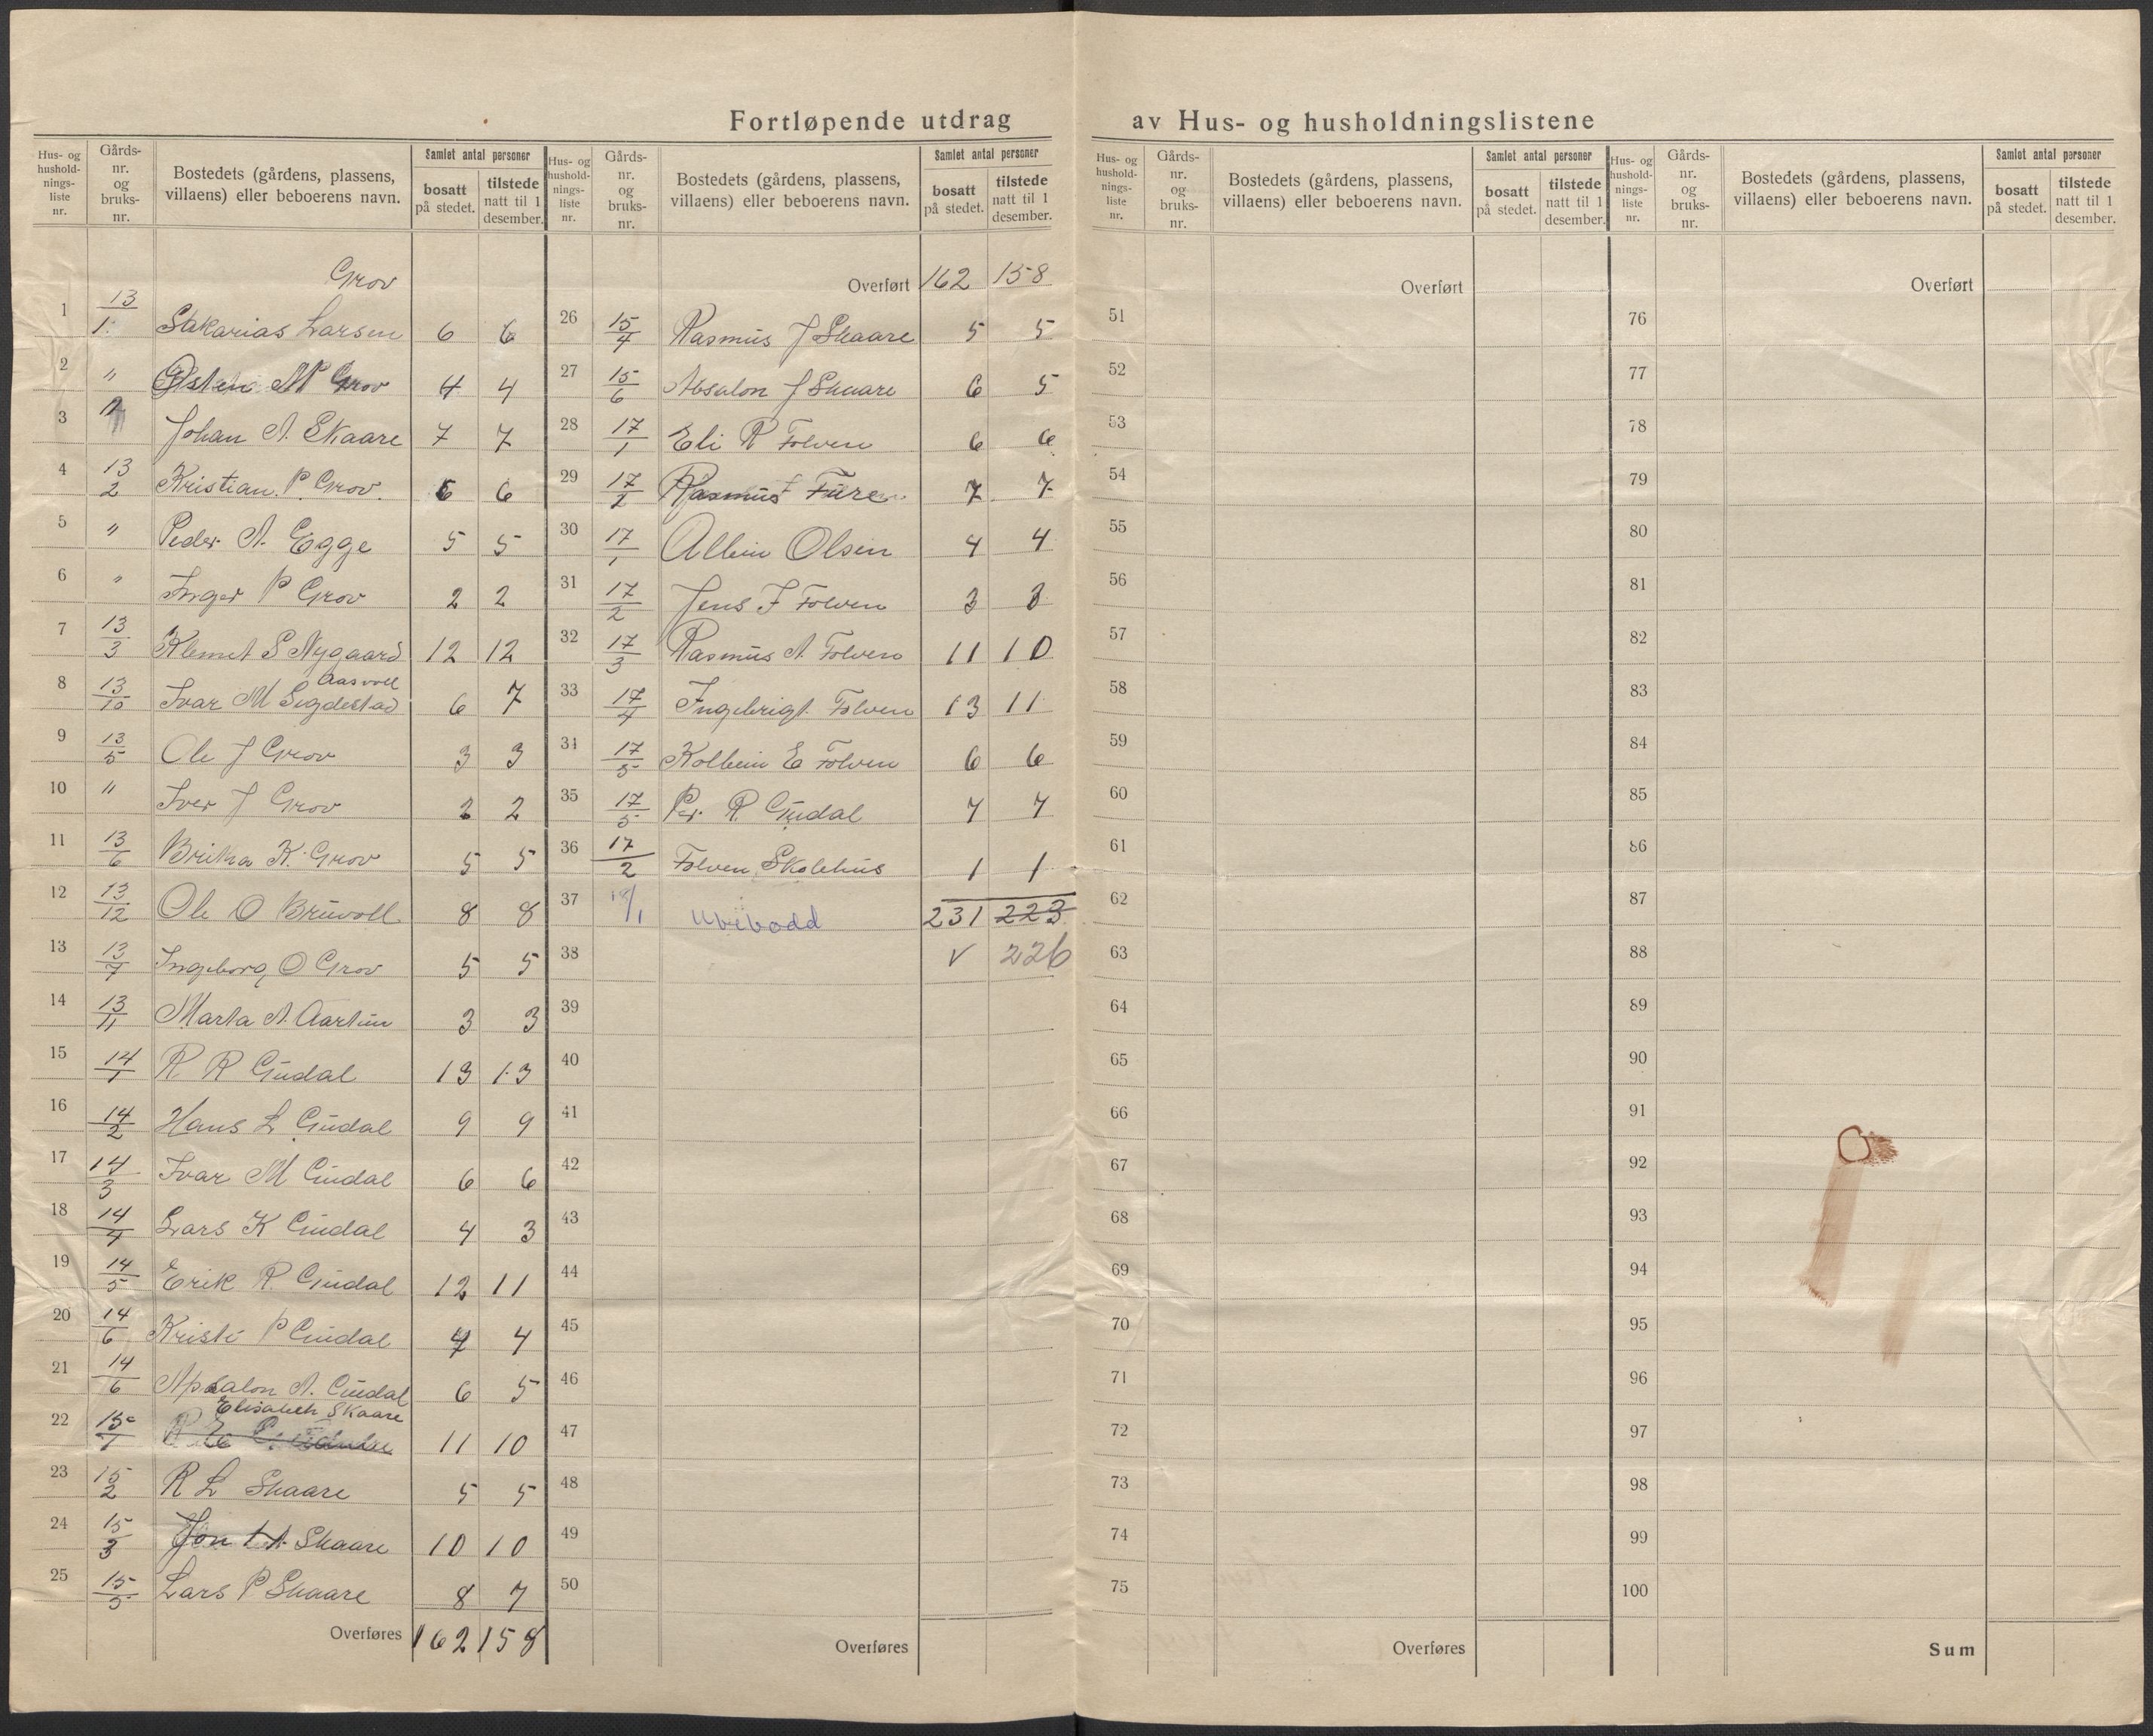 Fortløpende utdrag av Hus- og husholdningslistene
Hus- og husholdningsliste nr. | Gårdsnr. og bruksnr. | Bostedets (gårdens, plassens, villaens) eller beboerens navn. | Samlet antal personer: bosatt på stedet. | tilstede natt til 1 desember.
Grov
1 13/1 Sakarias Larsen 6 6
2 " Østen M Grov 4 4
3 " Johan A. Skaare 7 7
4 13/2 Kristian P. Grov. 6 6
5 " Peder A. Egge 5 5
6 " Inger P Grov 2 2
7 13/3 Klemet S Nygaard 12 12
Aasvoll
8 13/10 Ivar M Sigdestad 6 7
9 13/5 Ole J Grov 3 3
10 " Iver J Grov 2 2
11 13/6 Britha K. Grov 5 5
12 13/12 Ole O Bruvoll 8 8
13 13/7 Ingeborg O Grov 5 5
14 13/11 Marta A. Aartun 3 3
15 14/1 R R Gudal 13 13
16 14/2 Hans L Gudal 9 9
17 14/3 Ivar M Gudal 6 6
18 14/4 Lars K Gudal 4 3
19 14/5 Erik R. Gudal 12 11
20 14/6 Kristi P Gudal 4 4
21 14/6 Apsalon A. Gudal 6 5
Elisabeth Skaare
22 15/1 11 10
23 15/2 R L Skaare 5 5
24 15/3 Jon A Skaare 10 10
25 15/5 Lars P Skaare 8 7
Overføres 162 158
Hus- og husholdningsliste nr. | Gårdsnr. og bruksnr. | Bostedets (gårdens, plassens, villaens) eller beboerens navn. | Samlet antal personer: bosatt på stedet. | tilstede natt til 1 desember.
Overført 162 158
26 15/4 Rasmus J Skaare 5 5
27 15/6 Absalon J Skaare 6 5
28 17/1 Eli R Folven 6 6
29 17/2 Rasmus J Fure 7 7
30 17/1 Albin Olsen 4 4
31 17/2 Jens J Folven 3 3
32 17/3 Rasmus A. Folven 11 10
33 17/4 Ingebrigt Folven 13 11
34 17/5 Kolbein E Folven 6 6
35 17/5 Pr. R. Gudal 7 7
36 17/2 Folven Skolehus 1 1
37 18/1 Ubebodd 231 223
38 v 226
39
40
41
42
43
44
45
46
47
48
49
50
Overføres
Hus- og husholdningsliste nr. | Gårdsnr. og bruksnr. | Bostedets (gårdens, plassens, villaens) eller beboerens navn. | Samlet antal personer: bosatt på stedet. | tilstede natt til 1 desember.
Overført
51
52
53
54
55
56
57
58
59
60
61
62
63
64
65
66
67
68
69
70
71
72
73
74
75
Overføres
Hus- og husholdningsliste nr. | Gårdsnr. og bruksnr. | Bostedets (gårdens, plassens, villaens) eller beboerens navn. | Samlet antal personer: bosatt på stedet. | tilstede natt til 1 desember.
Overført
76
77
78
79
80
81
82
83
84
85
86
87
88
89
90
91
92
93
94
95
96
97
98
99
100
Sum